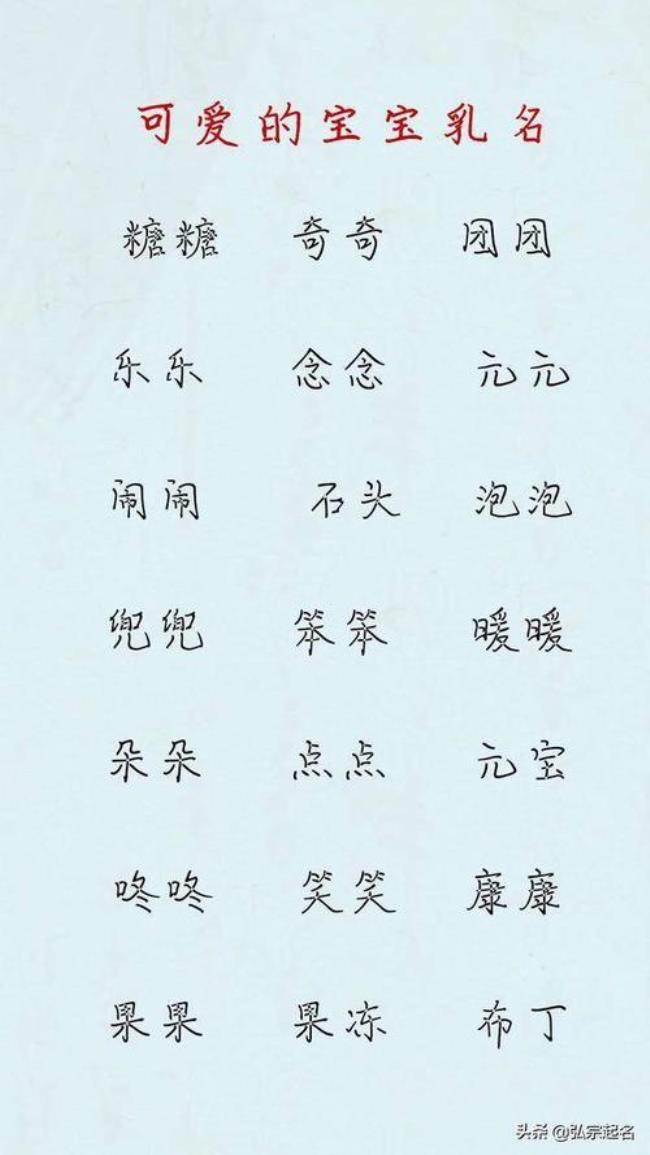 可爱的宝宝乳名
糖糖 奇奇 团团
乐乐 念念 元元
闹闹 石头 泡泡
兜兜 笨笨 暖暖
朵朵 点点 元宝
咚咚 笑笑 康康
果果 果冻 布丁
头条 @弘宗起名